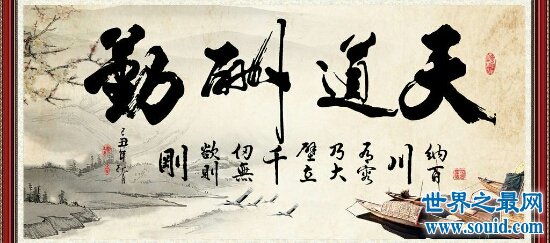 天道酬勤
納百川有容乃大壁立千仞無欲則剛
己丑年
世界之最网
www.souid.com